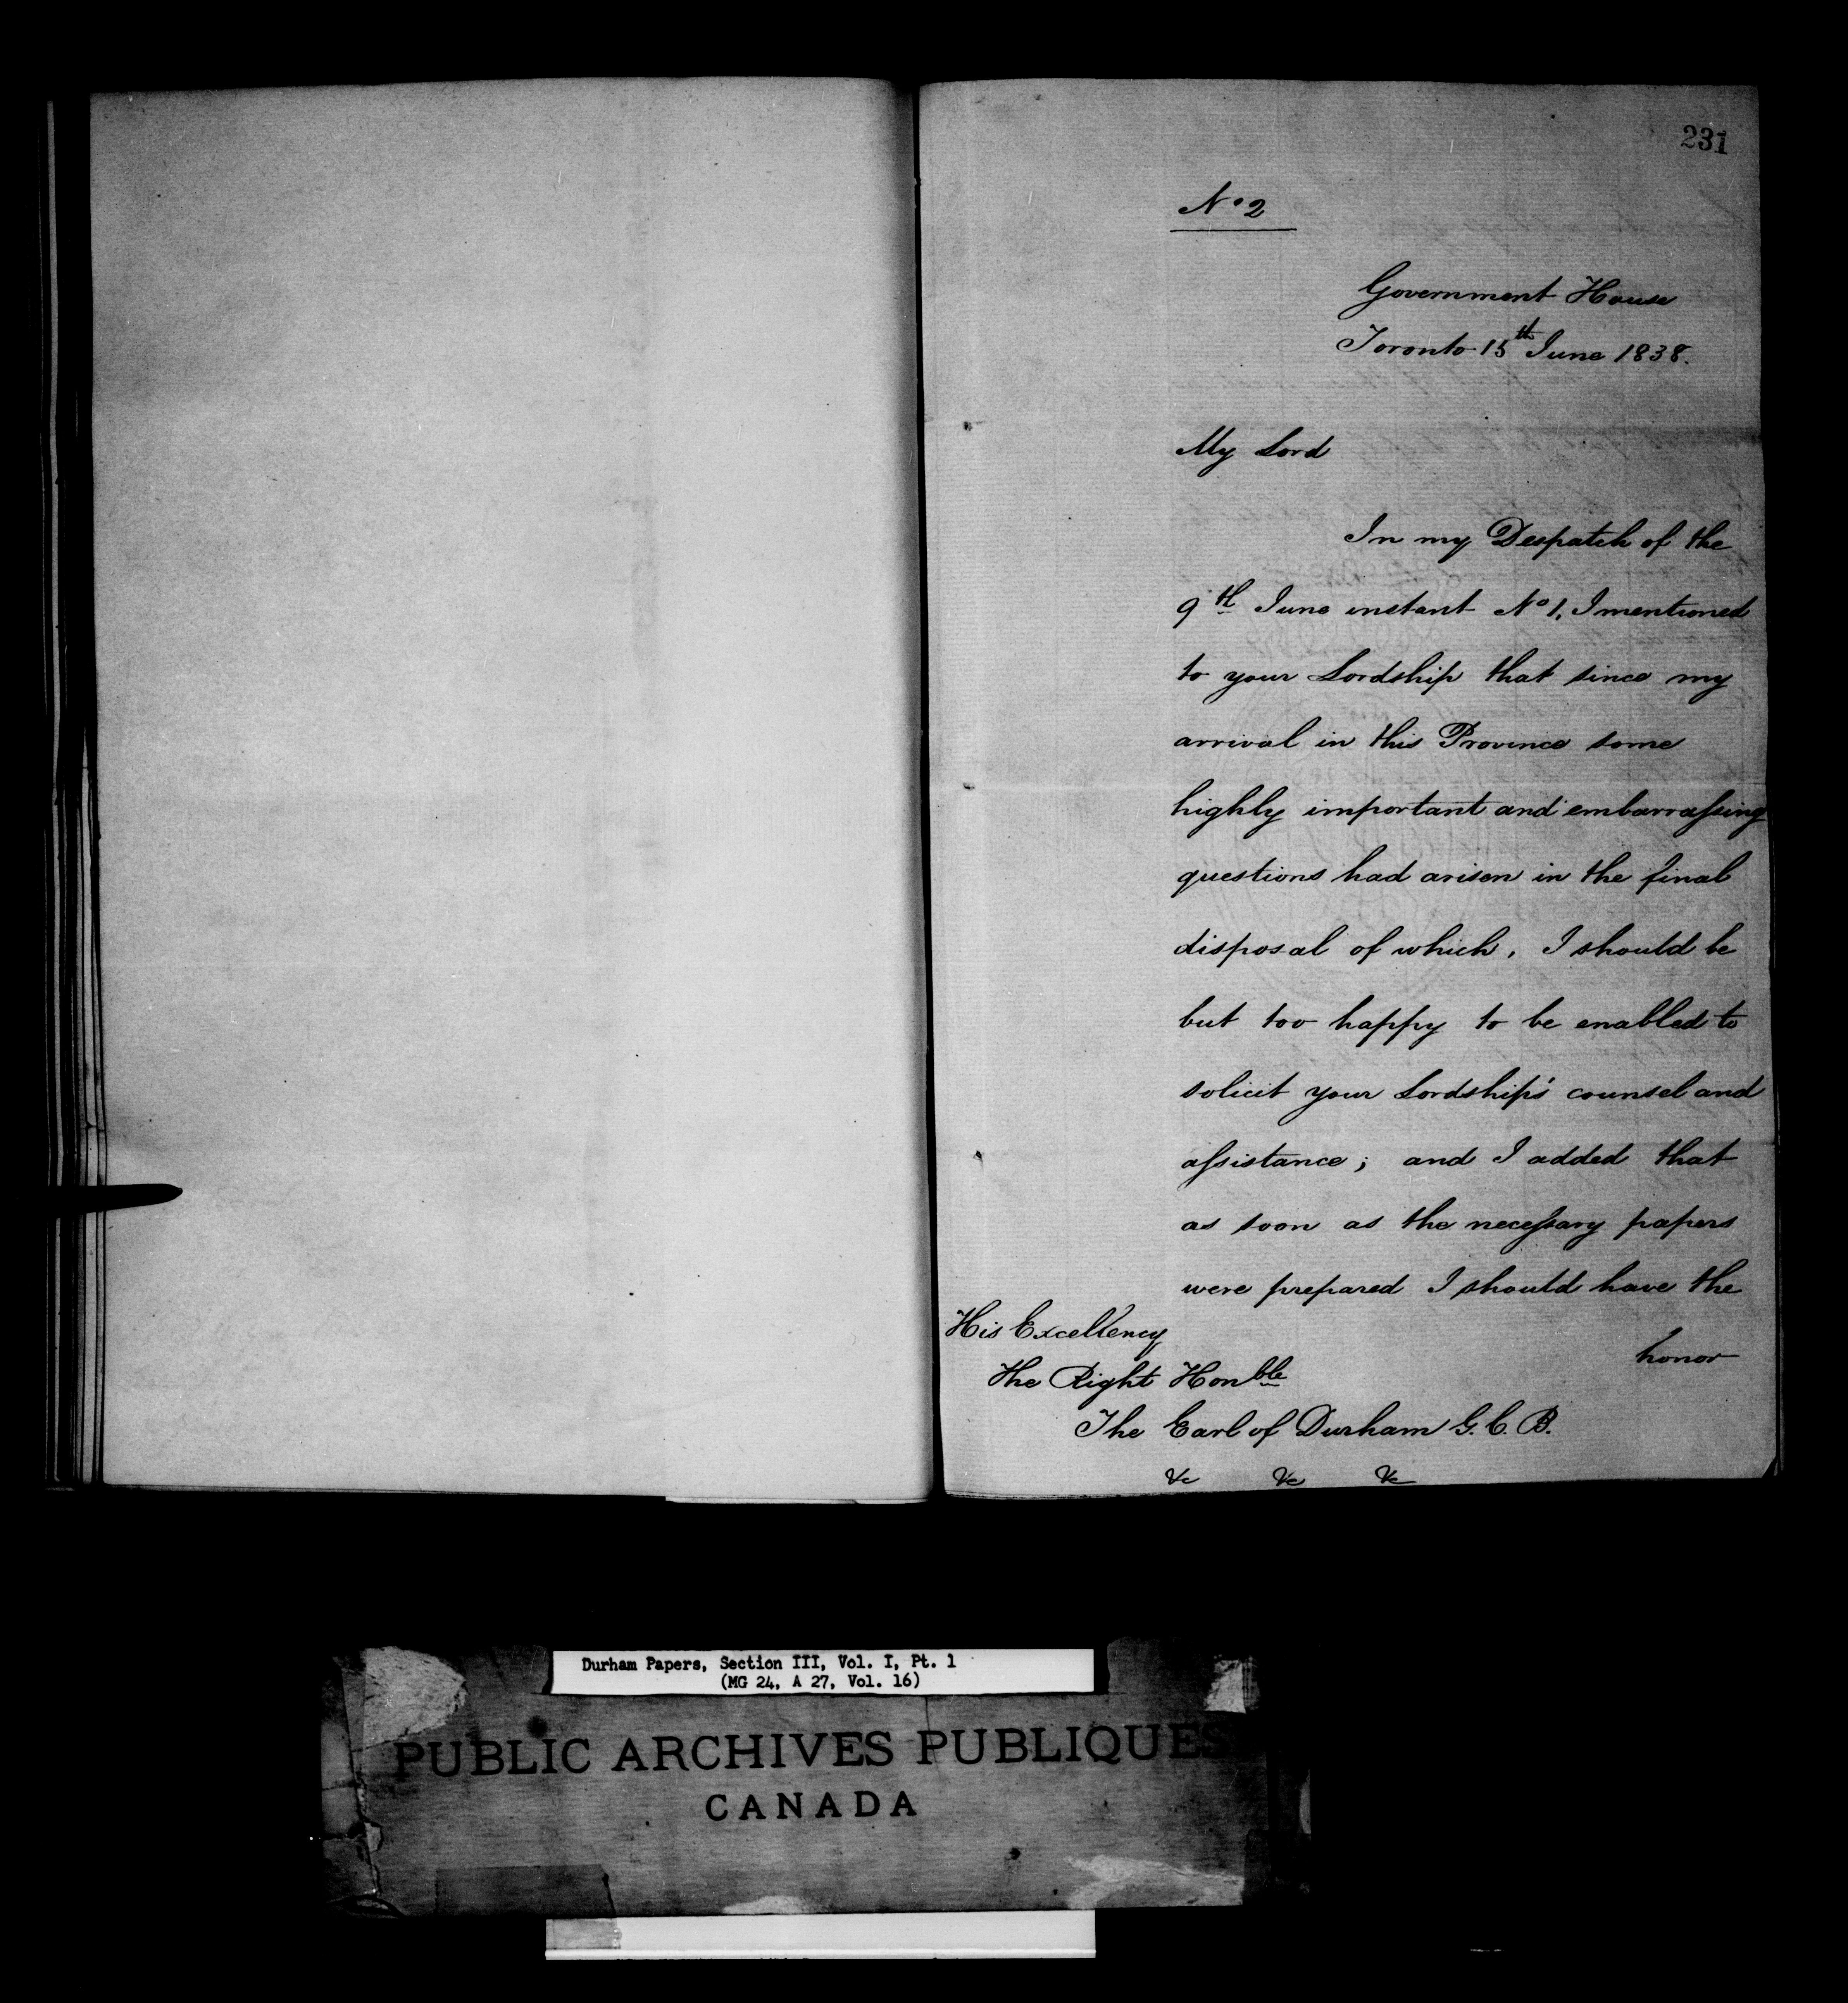 231
No 2
Government House
Toronto 15th June 1838.
My Lord
In my Despatch of the
9th June instant No 1, I mentioned
to your Lordship that since my
arrival in this Province some
highly important and embarraſsing
questions had arisen in the final
disposal of which, I should be
but too happy to be enabled to
solicit your Lordship's counsel and
aſsistance; and I added that
as soon as the neceſsary papers
were prepared I should have the
honor
His Excellency
the Right Honble
The Earl of Durham G.C.B.
&c &c &c
Durham Papers, Section III, Vol. I, Pt. 1
(MG 24, A 27, Vol. 16)
PUBLIC ARCHIVES PUBLIQUES
CANADA